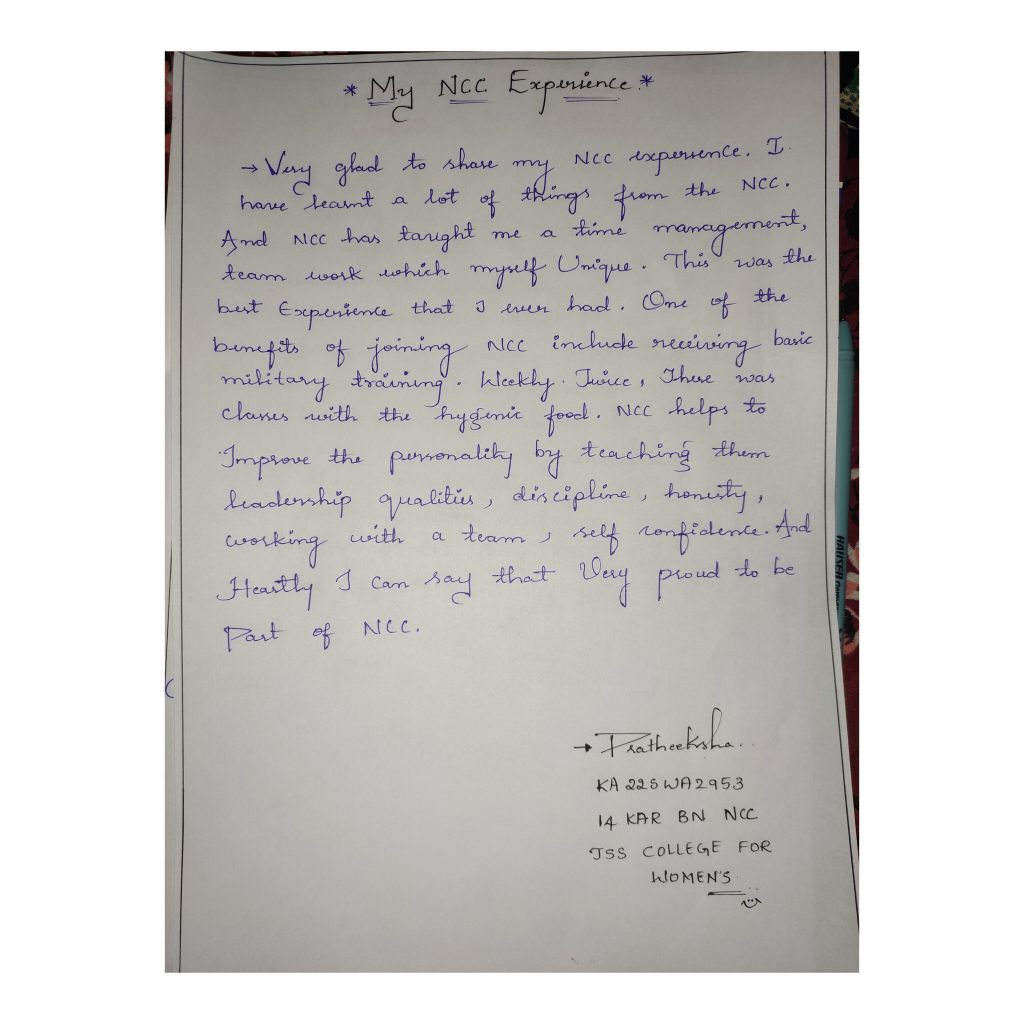 * My NCC Experience. *
→ Very glad to share my NCC experience. I
have learnt a lot of things from the NCC.
And NCC has taught me a time management,
team work which myself Unique. This was the
best Experience that I ever had. One of the
benefits of joining NCC include receiving basic
military training. Weekly. Twice, There was
classes with the hygenic food. NCC helps to
Improve the personality by teaching them
leadership qualities, discipline, honesty,
working with a team, self confidence. And
Heartly I can say that Very proud to be
Part of NCC.
→ Pratheeksha.
KA 22SWA2953
14 KAR BN NCC
JSS COLLEGE FOR
WOMEN'S
HAUSER